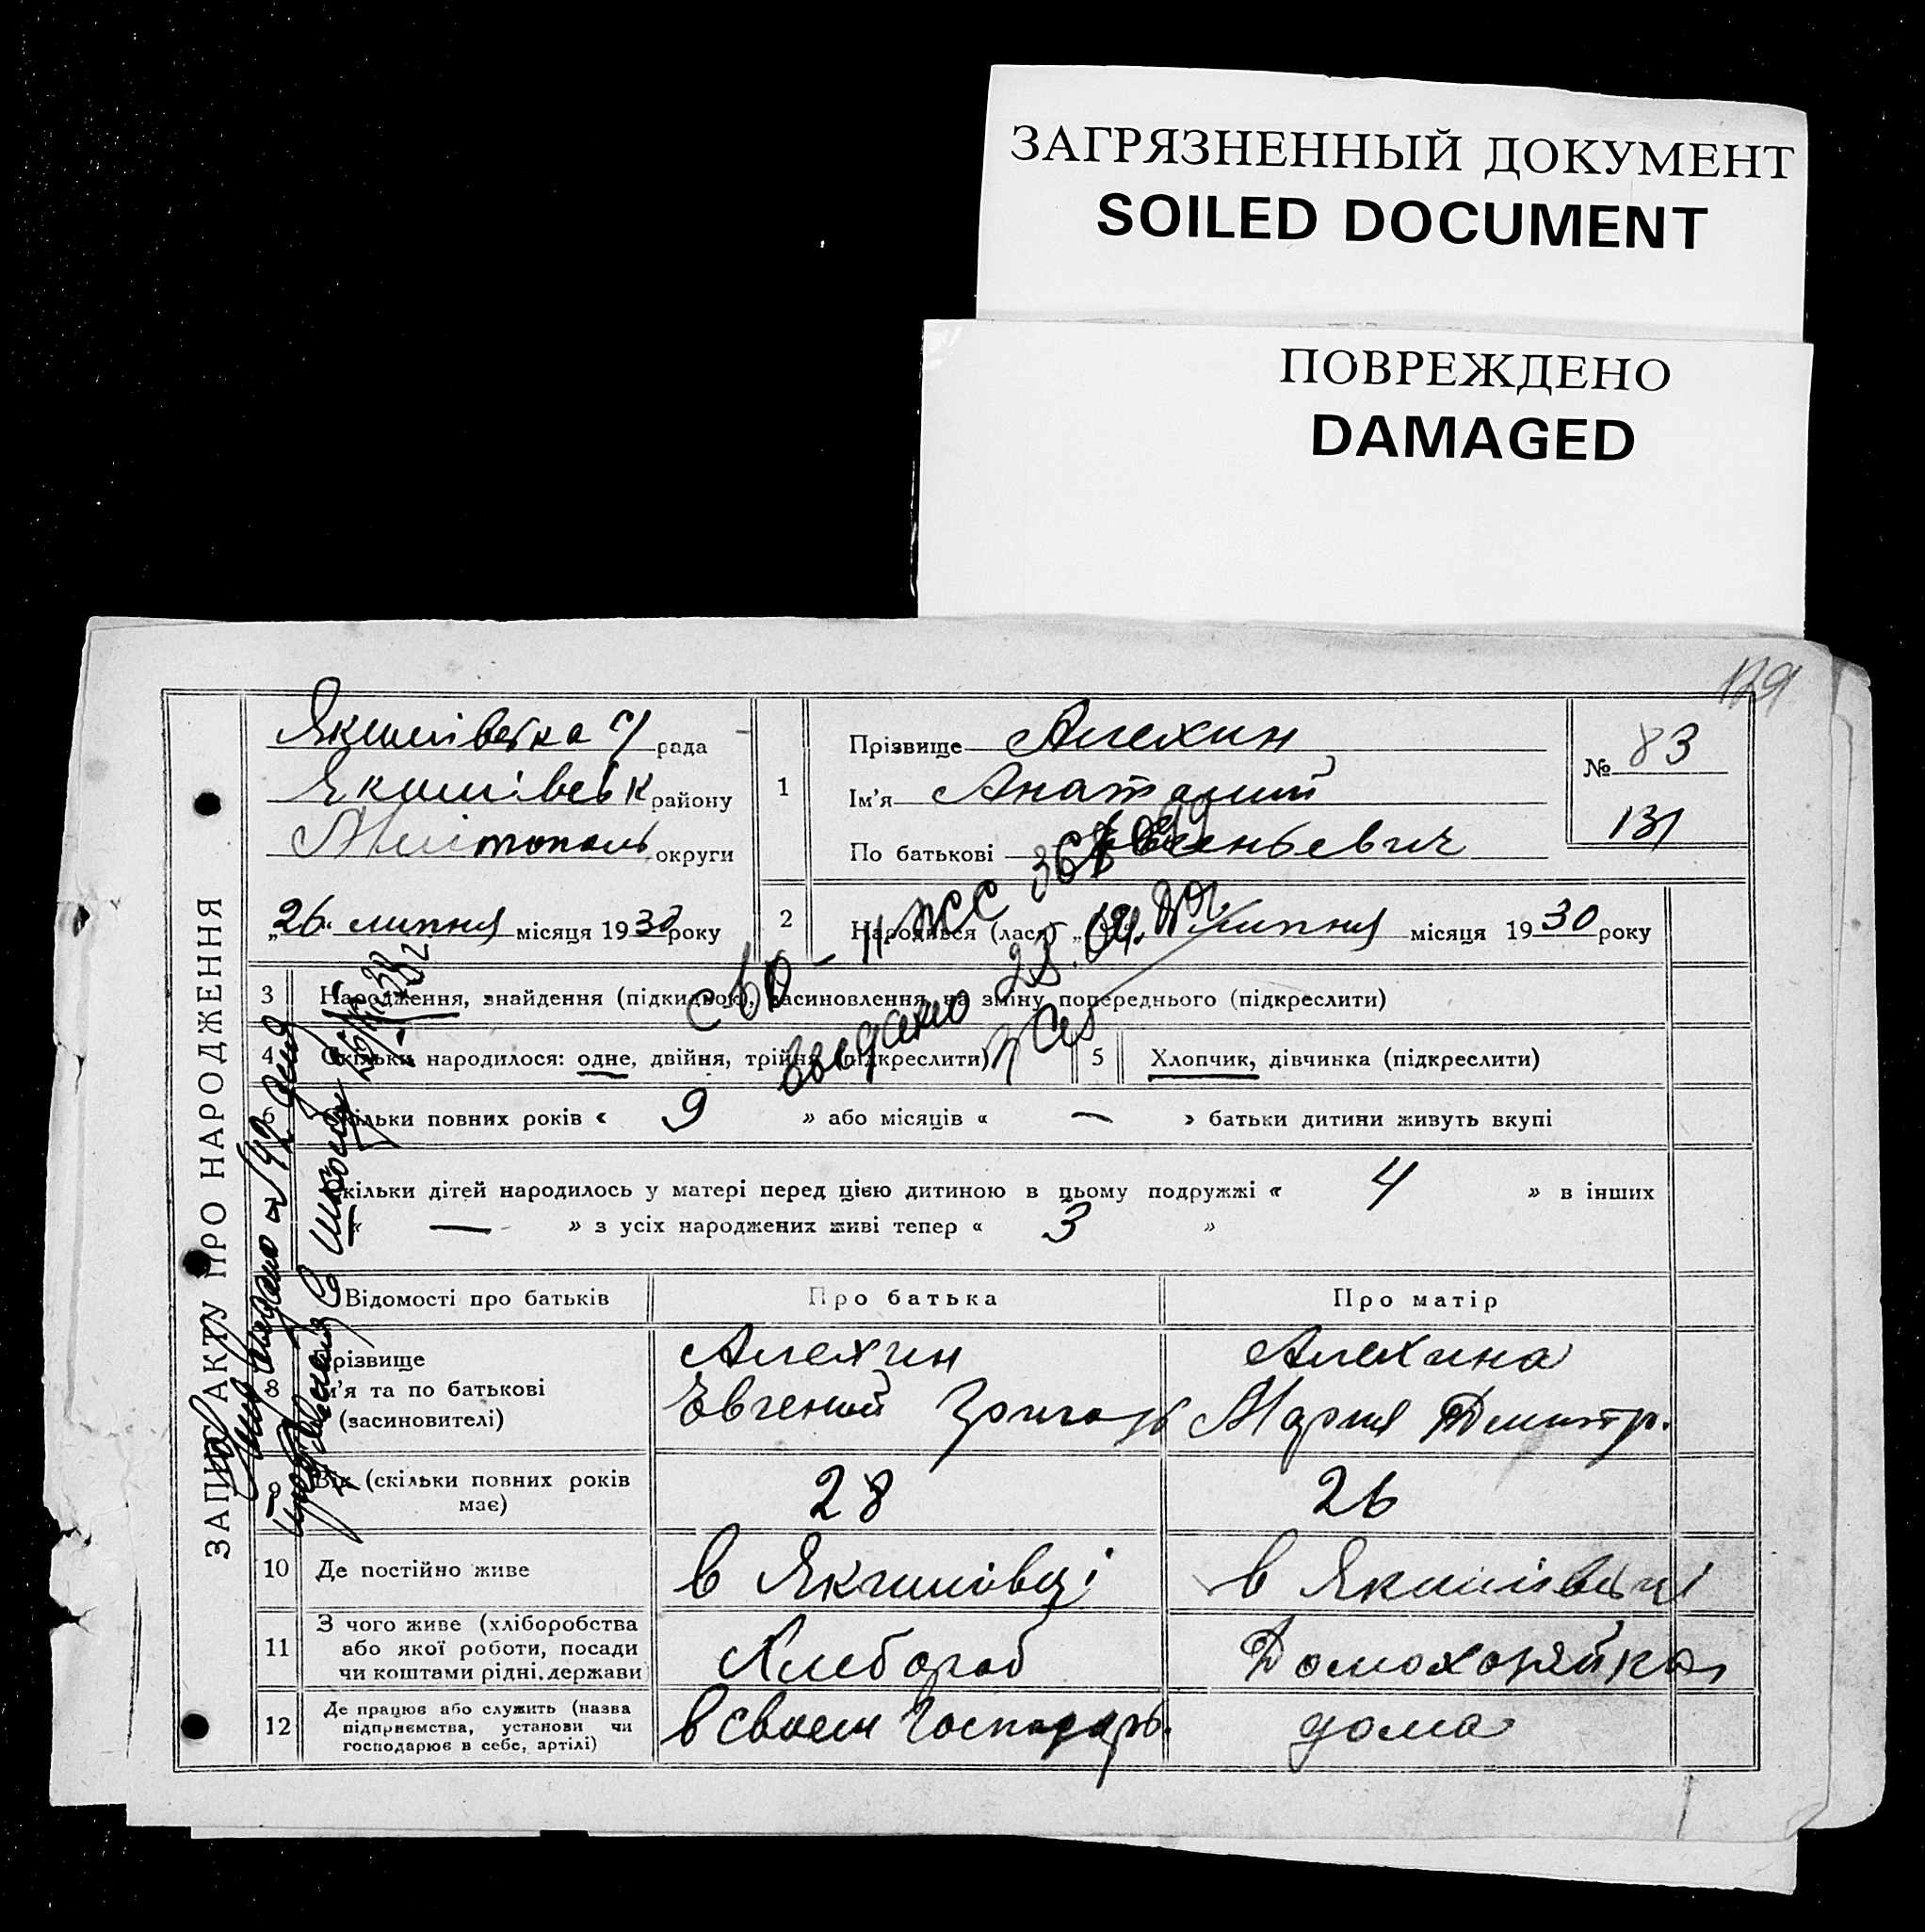 ЗАГРЯЗНЕННЫЙ ДОКУМЕНТ
SOILED DOCUMENT
ПОВРЕЖДЕНО
DAMAGED
129
ЗАПИС АКТУ ПРО НАРОДЖЕННЯ
Якимівська с/ рада
Якимівськ району
Мелітополь округи
„26“ липня місяця 1930 року
1
Прізвище Алехин
Ім'я Анатолий
По батькові Евгеньевич
№ 83
131
2
Народився (лася) липня місяця 1930 року
3 Народження, знайдення (підкидьою), засиновлення, на зміну попереднього (підкреслити)
4 Скільки народилося: одне, двійня, трійня (підкреслити)
5 Хлопчик, дівчинка (підкреслити)
6 Скільки повних років « 9 » або місяців « — » батьки дитини живуть вкупі
Скільки дітей народилось у матері перед цією дитиною в цьому подружжі « 4 » в інших
« — » з усіх народжених живі тепер « 3 »
Відомості про батьків Про батька Про матір
8 Прізвище
Ім'я та по батькові
(засиновителі)
Алехин
Евгений Григорь
Алехина
Мария Дмитр.
9 Вік (скільки повних років має)
28
26
10 Де постійно живе
в Якимівці
в Якимівці
11 З чого живе (хліборобства
або якої роботи, посади
чи коштами рідні, держави
Хлебороб
Домохозяйка
12 Де працює або служить (назва
підприємства, установи чи
господарює в себе, артілі)
в своем Господарь.
дома
выдано 28.04.